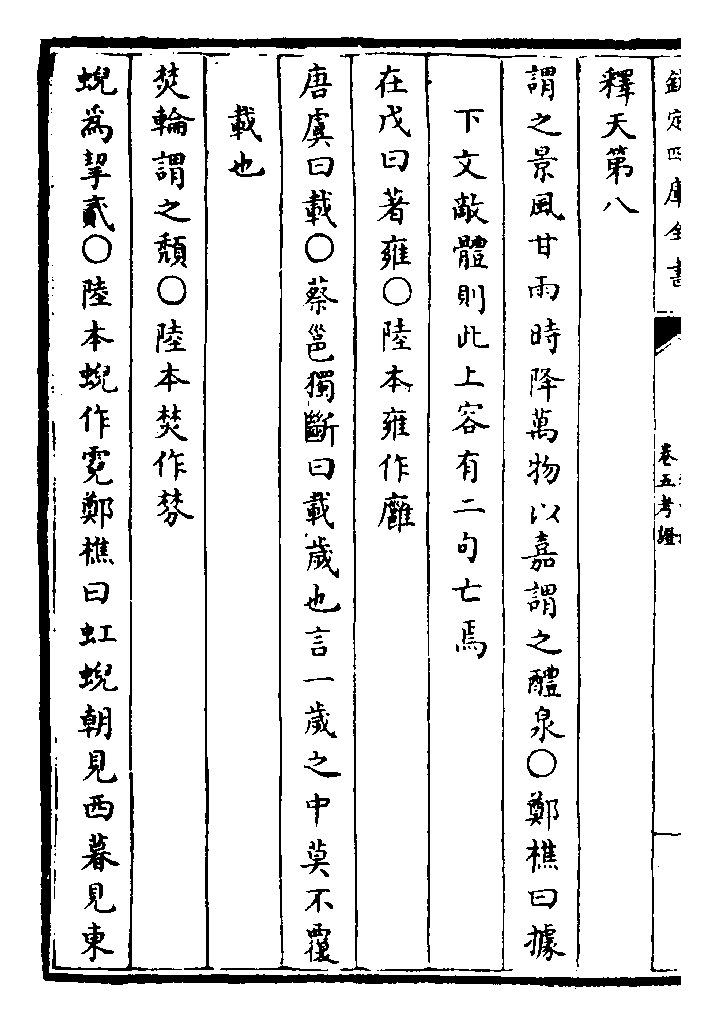 欽定四庫全書
卷五考證
釋天第八
謂之景風甘雨時降萬物以嘉謂之醴泉○鄭樵曰據
下文敵體則此上容有二句亡焉
在戊曰著雍○陸本雍作廱
唐虞曰載○蔡邕獨斷曰載歲也言一歲之中莫不覆
載也
焚輪謂之頹○陸本焚作棼
蜺為挈貳○陸本蜺作霓鄭樵曰虹蜺朝見西暮見東